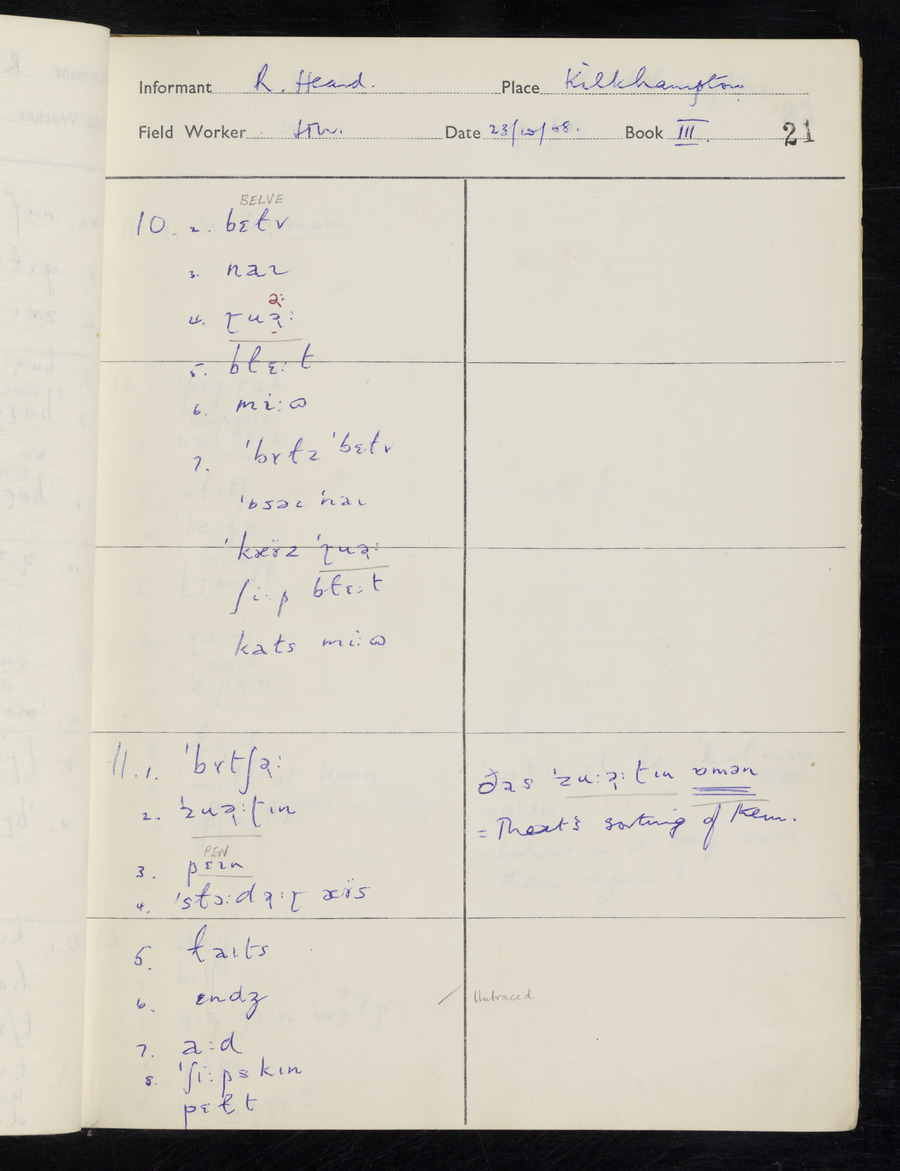 Informant R. Heard. Place Kilkhampton
Field Worker HW. Date 23/10/58. Book III. 21
BELVE
10. 2. bɛɫv
3. naɪ
ə̣:
4. ɽuə̣:
5. blɛ:t
6. mi:ω
7. 'bʏɫz 'bɛɫv
'ɒsəz 'naɪ
'kæʏ̈z 'ɽuə̣:
ʃi:p blɛ:t
kats mi:ω
11. 1. 'bʏtʃə̣:
2. 'zuə̣:tɪn
PEN
3. pɛɪn
4. 'stɔ:də̣:ɽ æʏ̈s
5. laɪts
6. ɛndʒ
7. a:d
8. 'ʃi:pskɪn
pɛɫt
ðəs 'zu:ə̣:tɪn ɒmən
= That's sorting of them.
Untraced